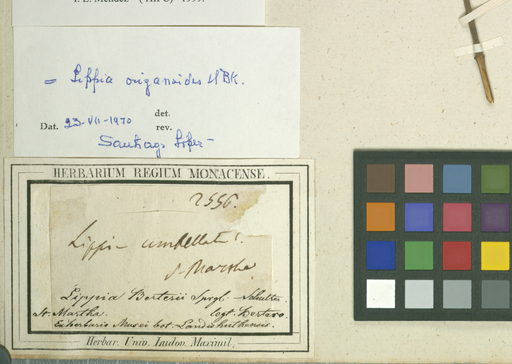 = Lippia origanoides HBK.
det.
Dat. 23-VII-1970 rev.
Santiago López-
HERBARIUM REGIUM MONACENSE.
2556.
Lippia umbellata
S. Martha
Lippia Berterii Sprgl - Schultes.
St. Martha. legt. Bertero.
Ex herbario Musei bot. Landishuthensis.
Herbar. Univ. Ludov. Maximil.